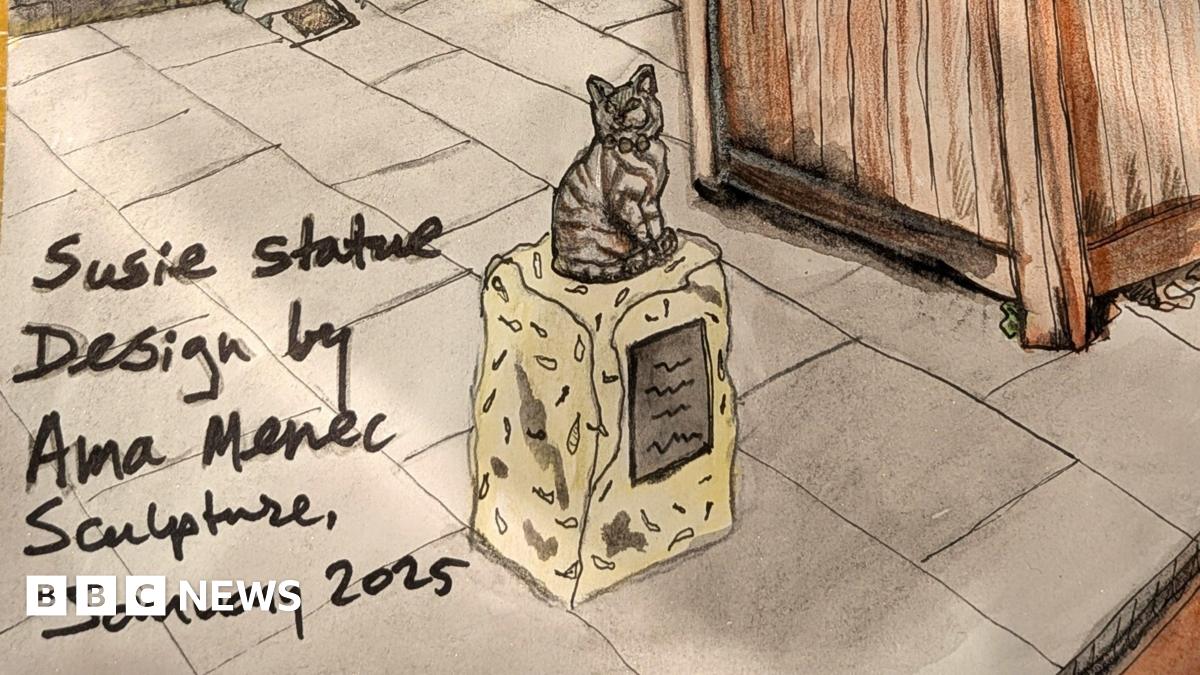 Susie statue
Design by
Ama Menec
Sculpture,
January 2025
BBC NEWS